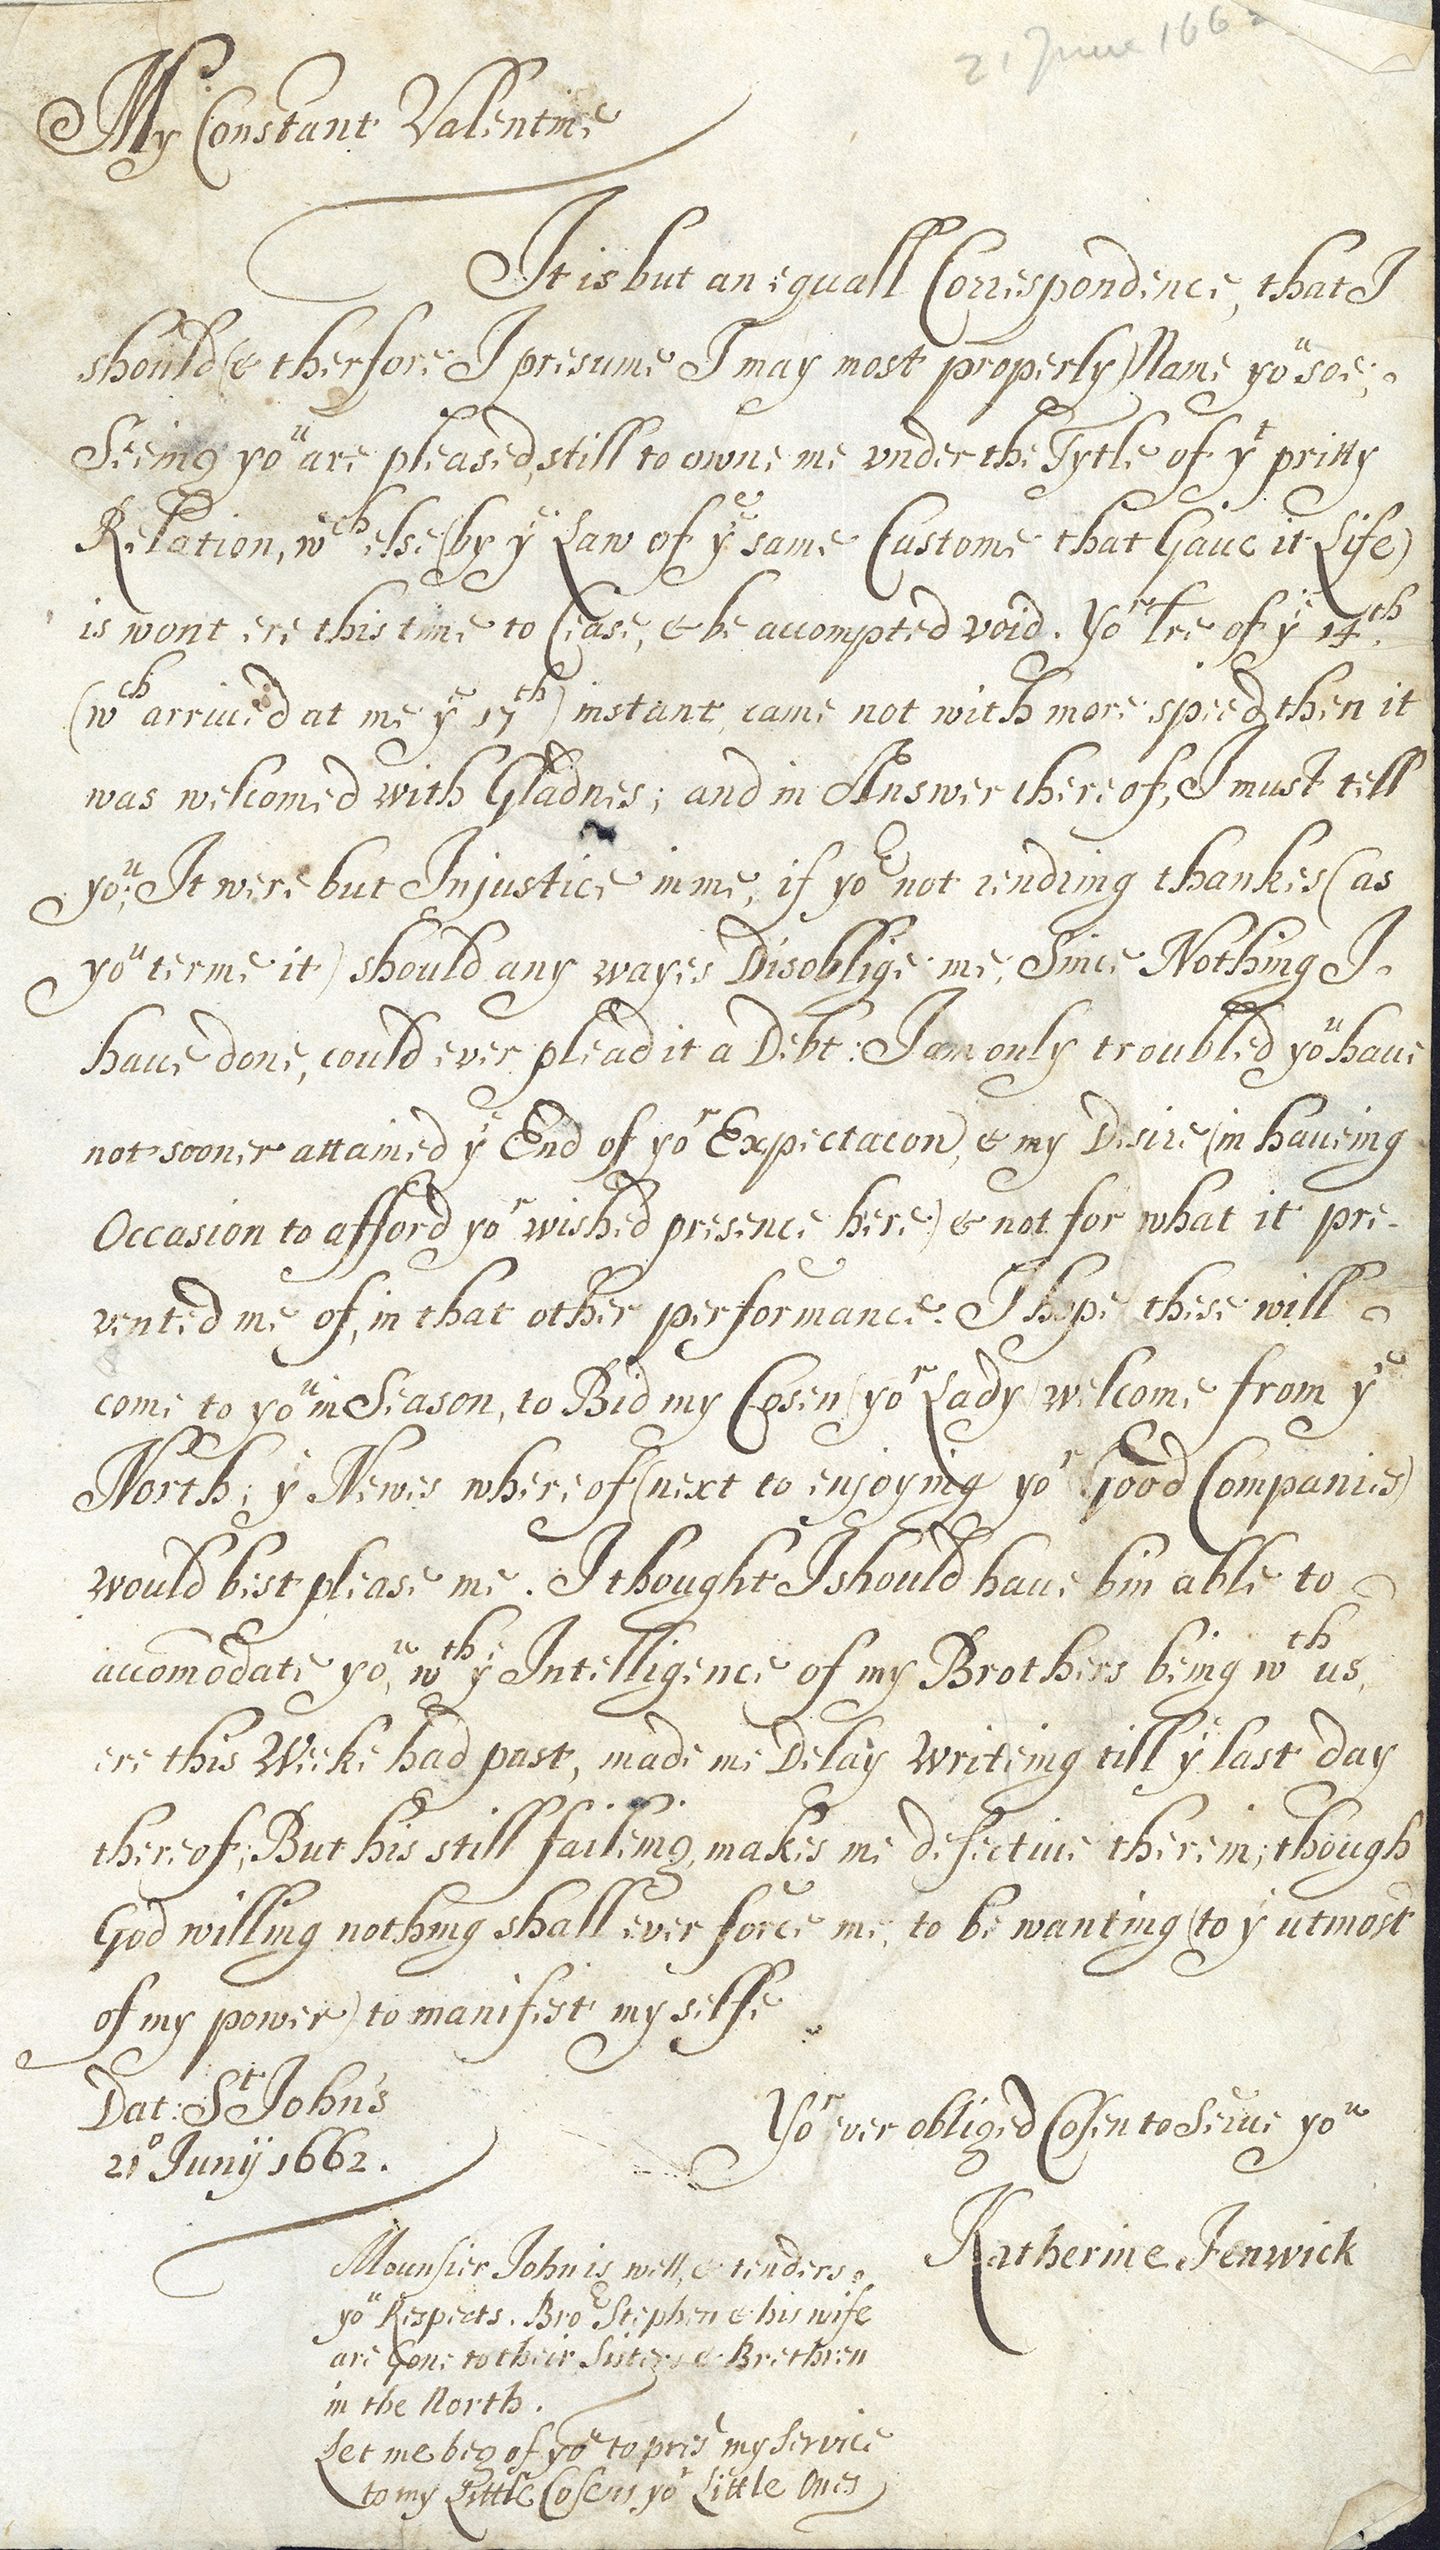 21 June 1662
My Constant Valentine
It is but an equall Correspondence, that I
should (& therfore I presume I may most properly) Name you soe;
Seeing you are pleased, still to owne me vnder the Tytle of yt pritty
Relation, wch else (by ye Law of ye same Custome that Gaue it Life)
is wont ere this time to Cease, & be accompted void. Yor Lre of ye 14th
(wch arriued at me ye 17th) instant, came not with more speed then it
was welcomed with Gladnes; and in Answer thereof, I must tell
you, It were but Injustice in me, if yor not rendring thankes (as
you terme it) should any wayes Disoblige me, Since Nothing I
haue done, could ever plead it a Debt: I am only troubled you haue
not sooner attained ye End of yor Expectacon, & my Desire (in haueing
Occasion to afford yor wished presence here) & not for what it pre-
vented me of, in that other performance. I hope these will
come to you in Season, to Bid my Cosen (yor Lady) welcome from ye
North; ye Newes whereof (next to enjoying yor Good Companies)
would best please me. I thought I should haue bin able to
accomodate you, wth ye Intelligence of my Brothers being wth us,
ere this Weeke had past, made me Delay Writeing till ye last day
thereof; But his still faileing, makes me defectiue therein; though
God willing nothing shall ever force me, to be wanting (to ye utmost
of my power) to manifest my selfe
Dat: St John's
21o Junij 1662.
Yor ever obliged Cosen to Serue you
Katherine Fenwick
Mounsier John is well, & tenders
you Respects. Bror Stephen & his wife
are Gone to their Sisters & Brethren
in the North.
Let me beg of you to prest my Service
to my Little Cosens yor Little Ones